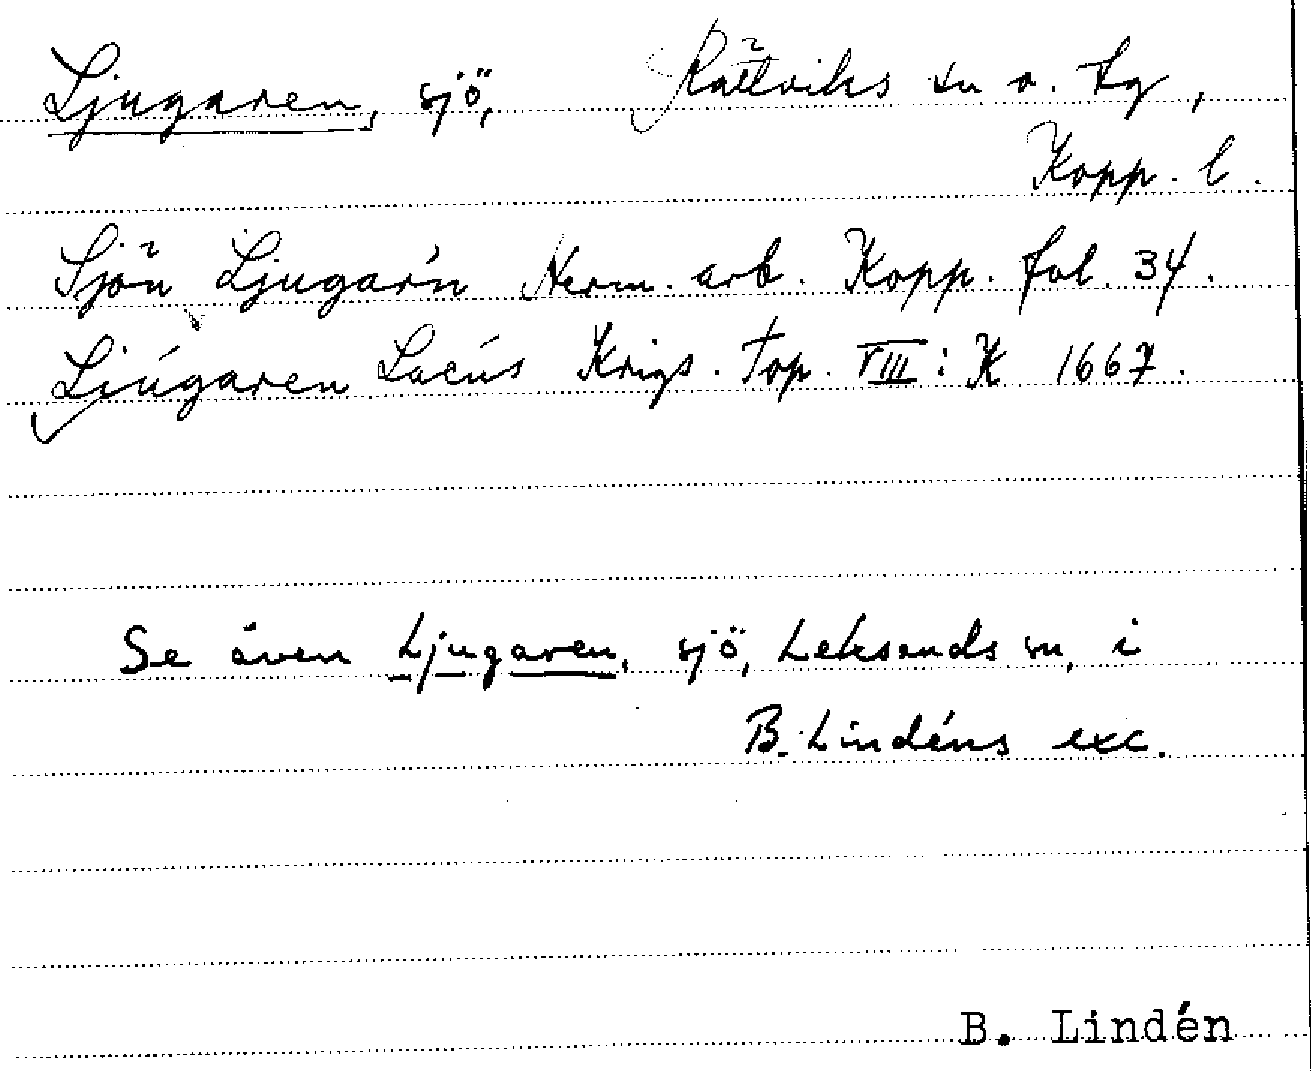 Ljugaren, sjö, Rättviks sn o. tg,
Kopp. l.
Sjön Ljugar'n Herm. arb. Kopp. fol. 34.
Ljúgaren Lacús Krigs. Top. VIII: K 1667.
Se även Ljugaren, sjö, Leksands sn, i
B. Lindéns exc.
B. Lindén